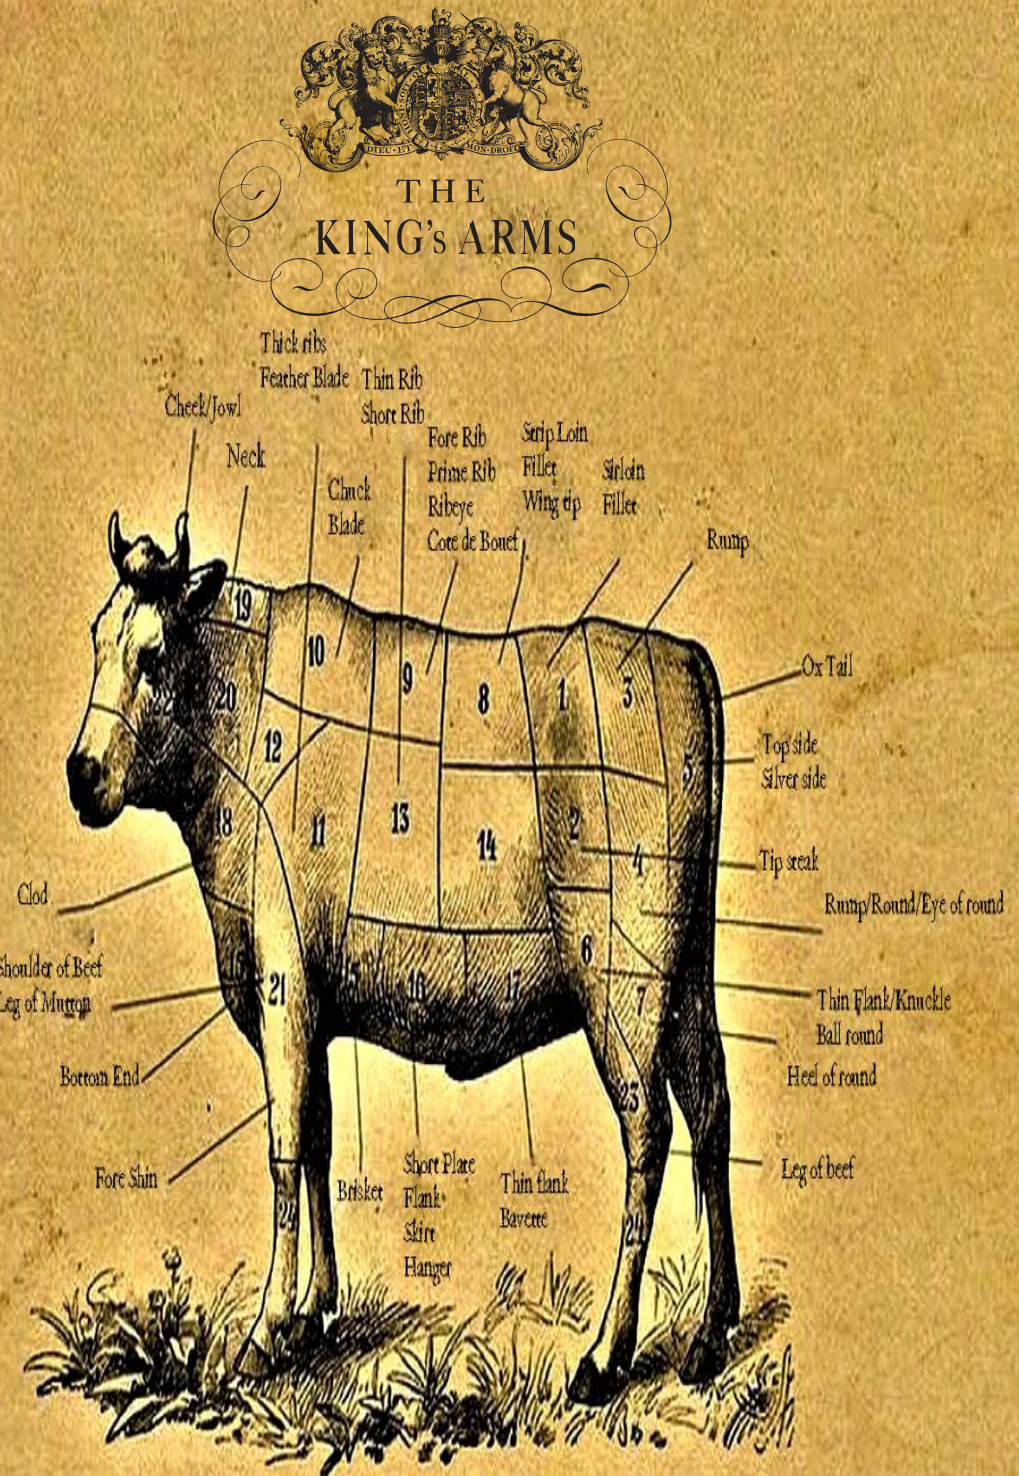 DIEU·ET MON·DROIT
THE
KING's ARMS
Thick ribs
Feather Blade
Thin Rib
Short Rib
Cheek/Jowl
Neck
Chuck
Blade
Fore Rib
Prime Rib
Ribeye
Cote de Bouef
Strip Loin
Fillet
Wing tip
Sirloin
Fillet
Rump
Ox Tail
Top side
Silver side
Tip steak
Rump/Round/Eye of round
Thin Flank/Knuckle
Ball round
Heel of round
Leg of beef
Clod
Shoulder of Beef
Leg of Mutton
Bottom End
Fore Shin
Brisket
Short Plate
Flank
Skirt
Hanger
Thin flank
Bavette
19
10
9
8
1
3
22
20
12
5
18
11
13
14
2
4
21
15
16
17
6
7
23
24
24